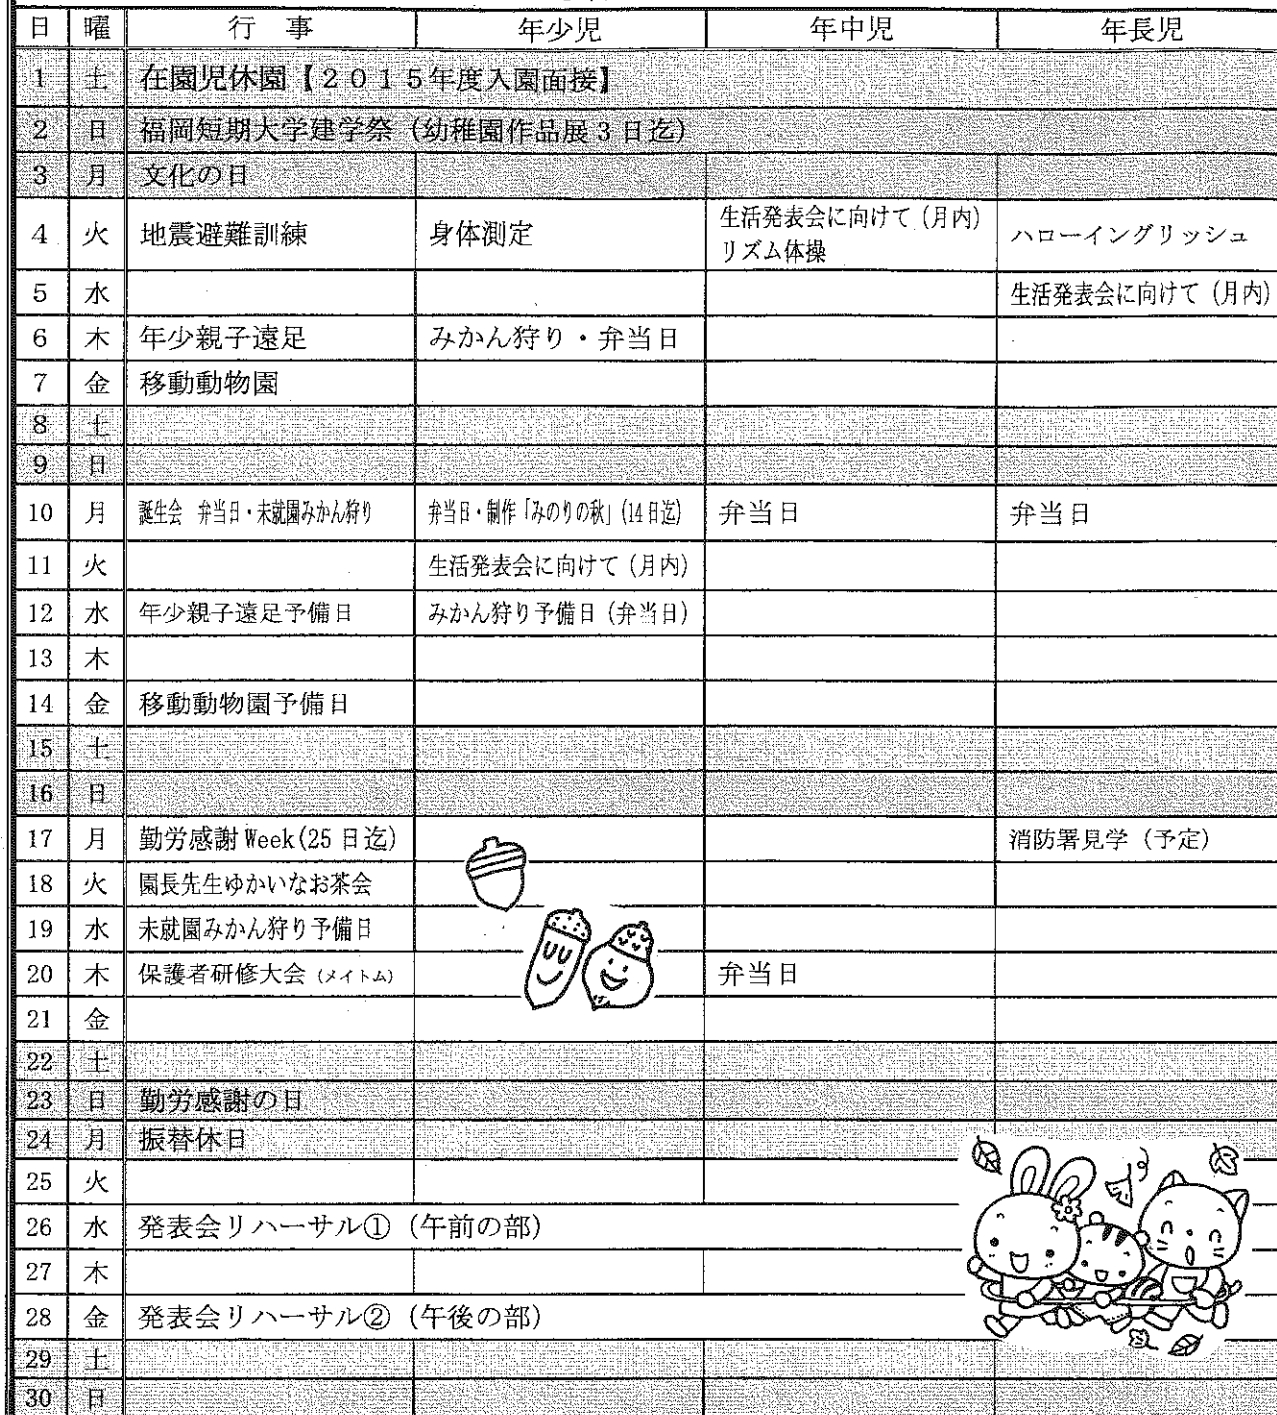 日 曜 行 事 年少児 年中児 年長児
1 土 在園児休園【2015年度入園面接】
2 日 福岡短期大学建学祭（幼稚園作品展3日迄）
3 月 文化の日
4 火 地震避難訓練 身体測定 生活発表会に向けて（月内） ハローイングリッシュ
リズム体操
5 水 生活発表会に向けて（月内）
6 木 年少親子遠足 みかん狩り・弁当日
7 金 移動動物園
8 土
9 日
10 月 誕生会 弁当日・未就園みかん狩り 弁当日・制作「みのりの秋」（14日迄） 弁当日 弁当日
11 火 生活発表会に向けて（月内）
12 水 年少親子遠足予備日 みかん狩り予備日（弁当日）
13 木
14 金 移動動物園予備日
15 土
16 日
17 月 勤労感謝Week(25日迄) 消防署見学（予定）
18 火 園長先生ゆかいなお茶会
19 水 未就園みかん狩り予備日
20 木 保護者研修大会（メイトム） 弁当日
21 金
22 土
23 日 勤労感謝の日
24 月 振替休日
25 火
26 水 発表会リハーサル①（午前の部）
27 木
28 金 発表会リハーサル②（午後の部）
29 土
30 日